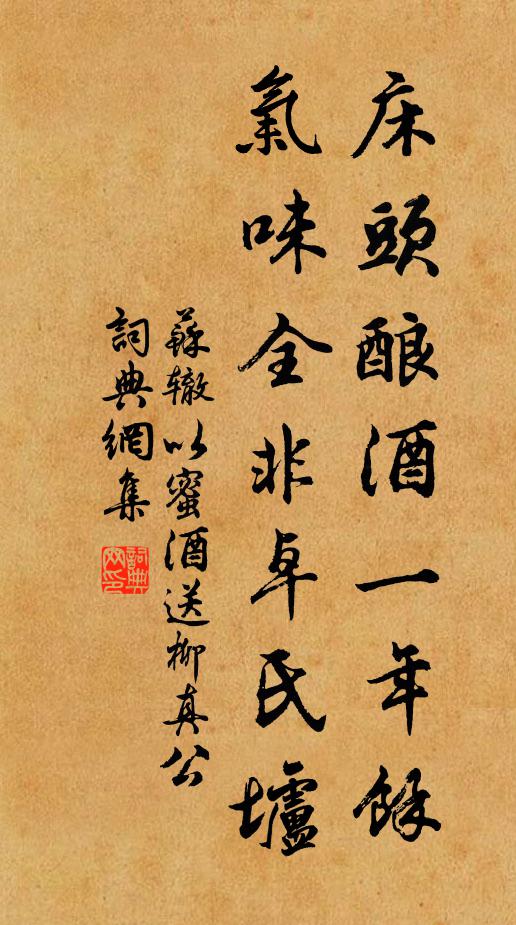 床頭酿酒一年餘
氣味全非卓氏壚
蘇辙以蜜酒送柳真公
詞典網集
詞典
网印